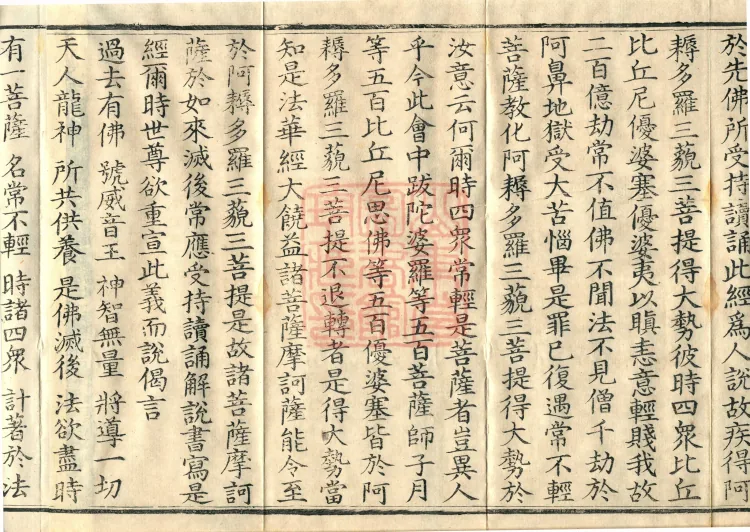 於先佛所受持讀誦此經爲人說故疾得阿
耨多羅三藐三菩提得大勢彼時四衆比丘
比丘尼優婆塞優婆夷以瞋恚意輕賤我故
二百億劫常不值佛不聞法不見僧千劫於
阿鼻地獄受大苦惱畢是罪已復遇常不輕
菩薩教化阿耨多羅三藐三菩提得大勢於
汝意云何爾時四衆常輕是菩薩者豈異人
乎今此會中跋陀婆羅等五百菩薩師子月
等五百比丘尼思佛等五百優婆塞皆於阿
耨多羅三藐三菩提不退轉者是得大勢當
知是法華經大饒益諸菩薩摩訶薩能令至
於阿耨多羅三藐三菩提是故諸菩薩摩訶
薩於如來滅後常應受持讀誦解說書寫是
經爾時世尊欲重宣此義而說偈言
過去有佛 號威音王 神智無量 將導一切
天人龍神 所共供養 是佛滅後 法欲盡時
有一菩薩 名常不輕 時諸四衆 計著於法